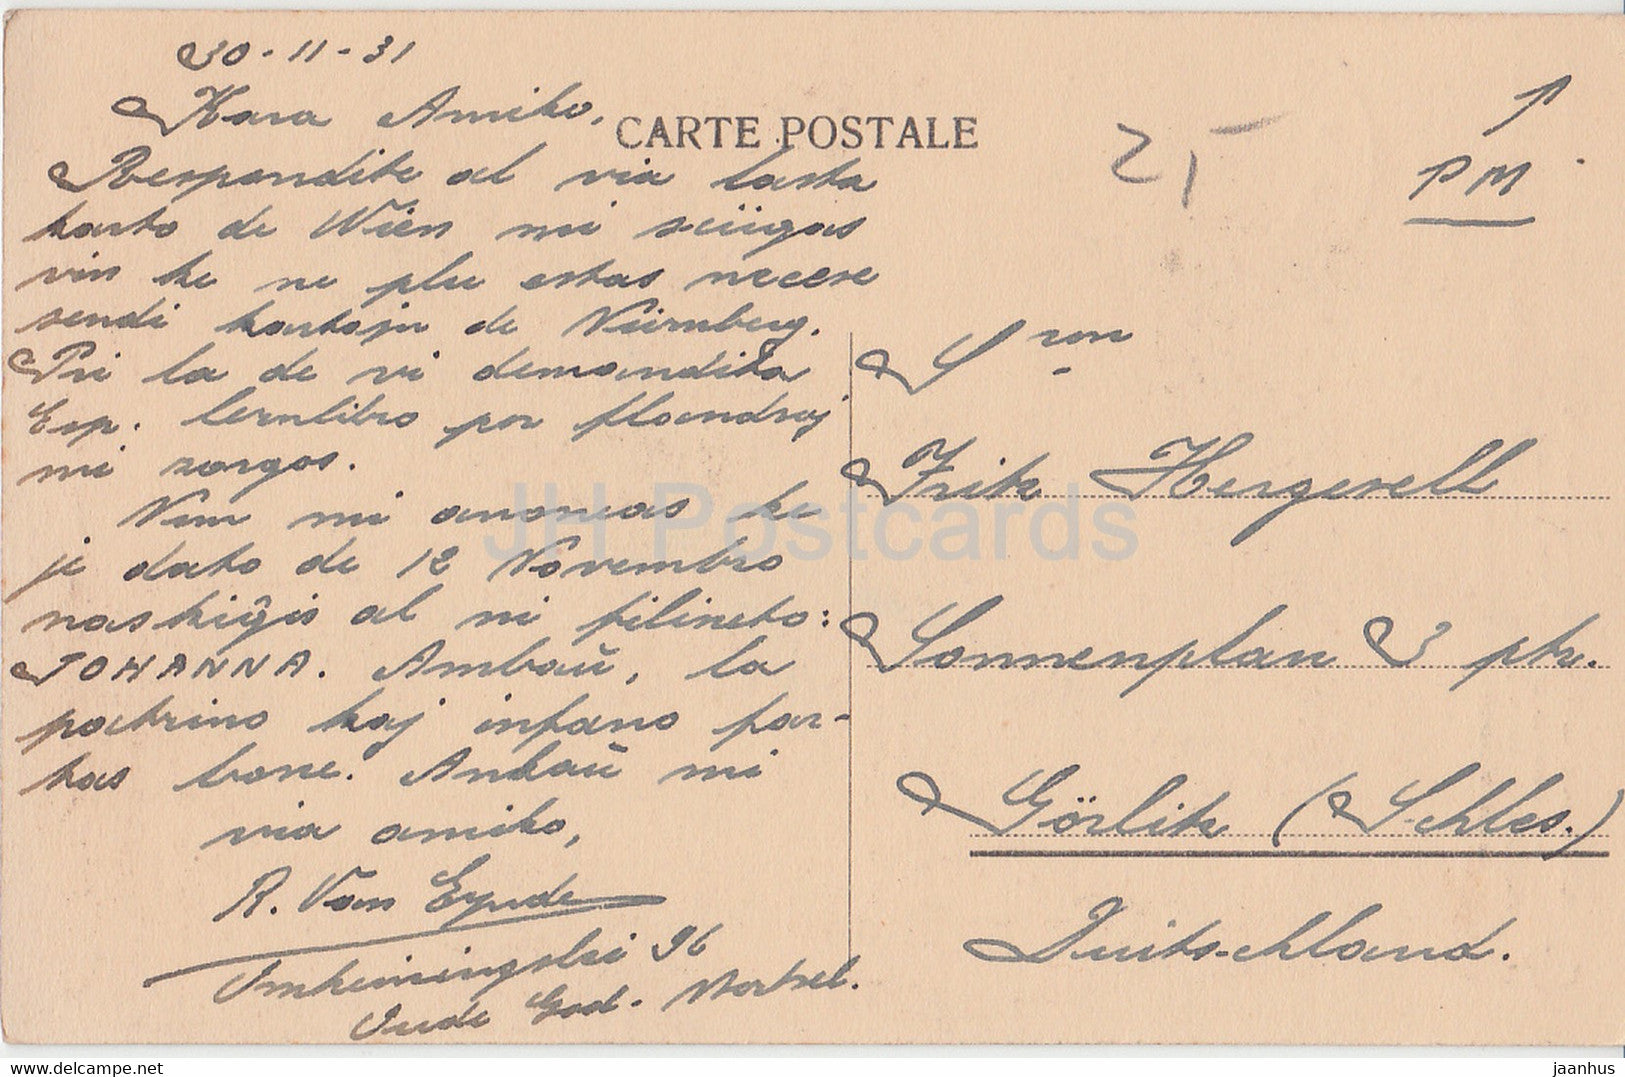 30-11-31
Kara Amiko,
CARTE POSTALE
25
PM
Respondite al via lasta
karto de Wien mi sciigas
vin ke ne plu estas necese
sendi kartojn de Nürnberg.
Pri la de vi demandita
Esp. lernlibro por flandroj
mi zorgos.
Nun mi anoncas ke
je dato de 12 Novembro
naskiĝis al ni filineto:
JOHANNA. Ambaŭ, la
patrino kaj infano far-
tas bone. Ankaŭ mi
via amiko,
R. Van Eynde
96
Oude God. Mortsel.
Sron
Frik Hergesell
Sonnenplan 3 ptr.
Görlitz (Schles.)
Duitschland.
JH Postcards
www.delcampe.net
jaanhus